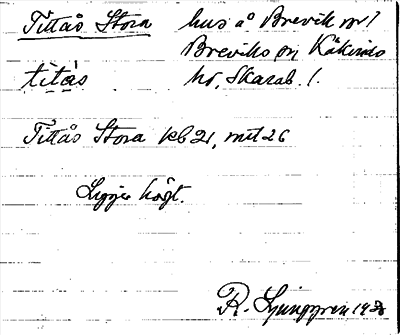 Tittås Stora hus å Brevik nr 1
Breviks sn Kåkinds
titås hd, Skarab. l.
Tittås Stora kb 21, mtl 26
Ligger högt.
R. Ljunggren, 19